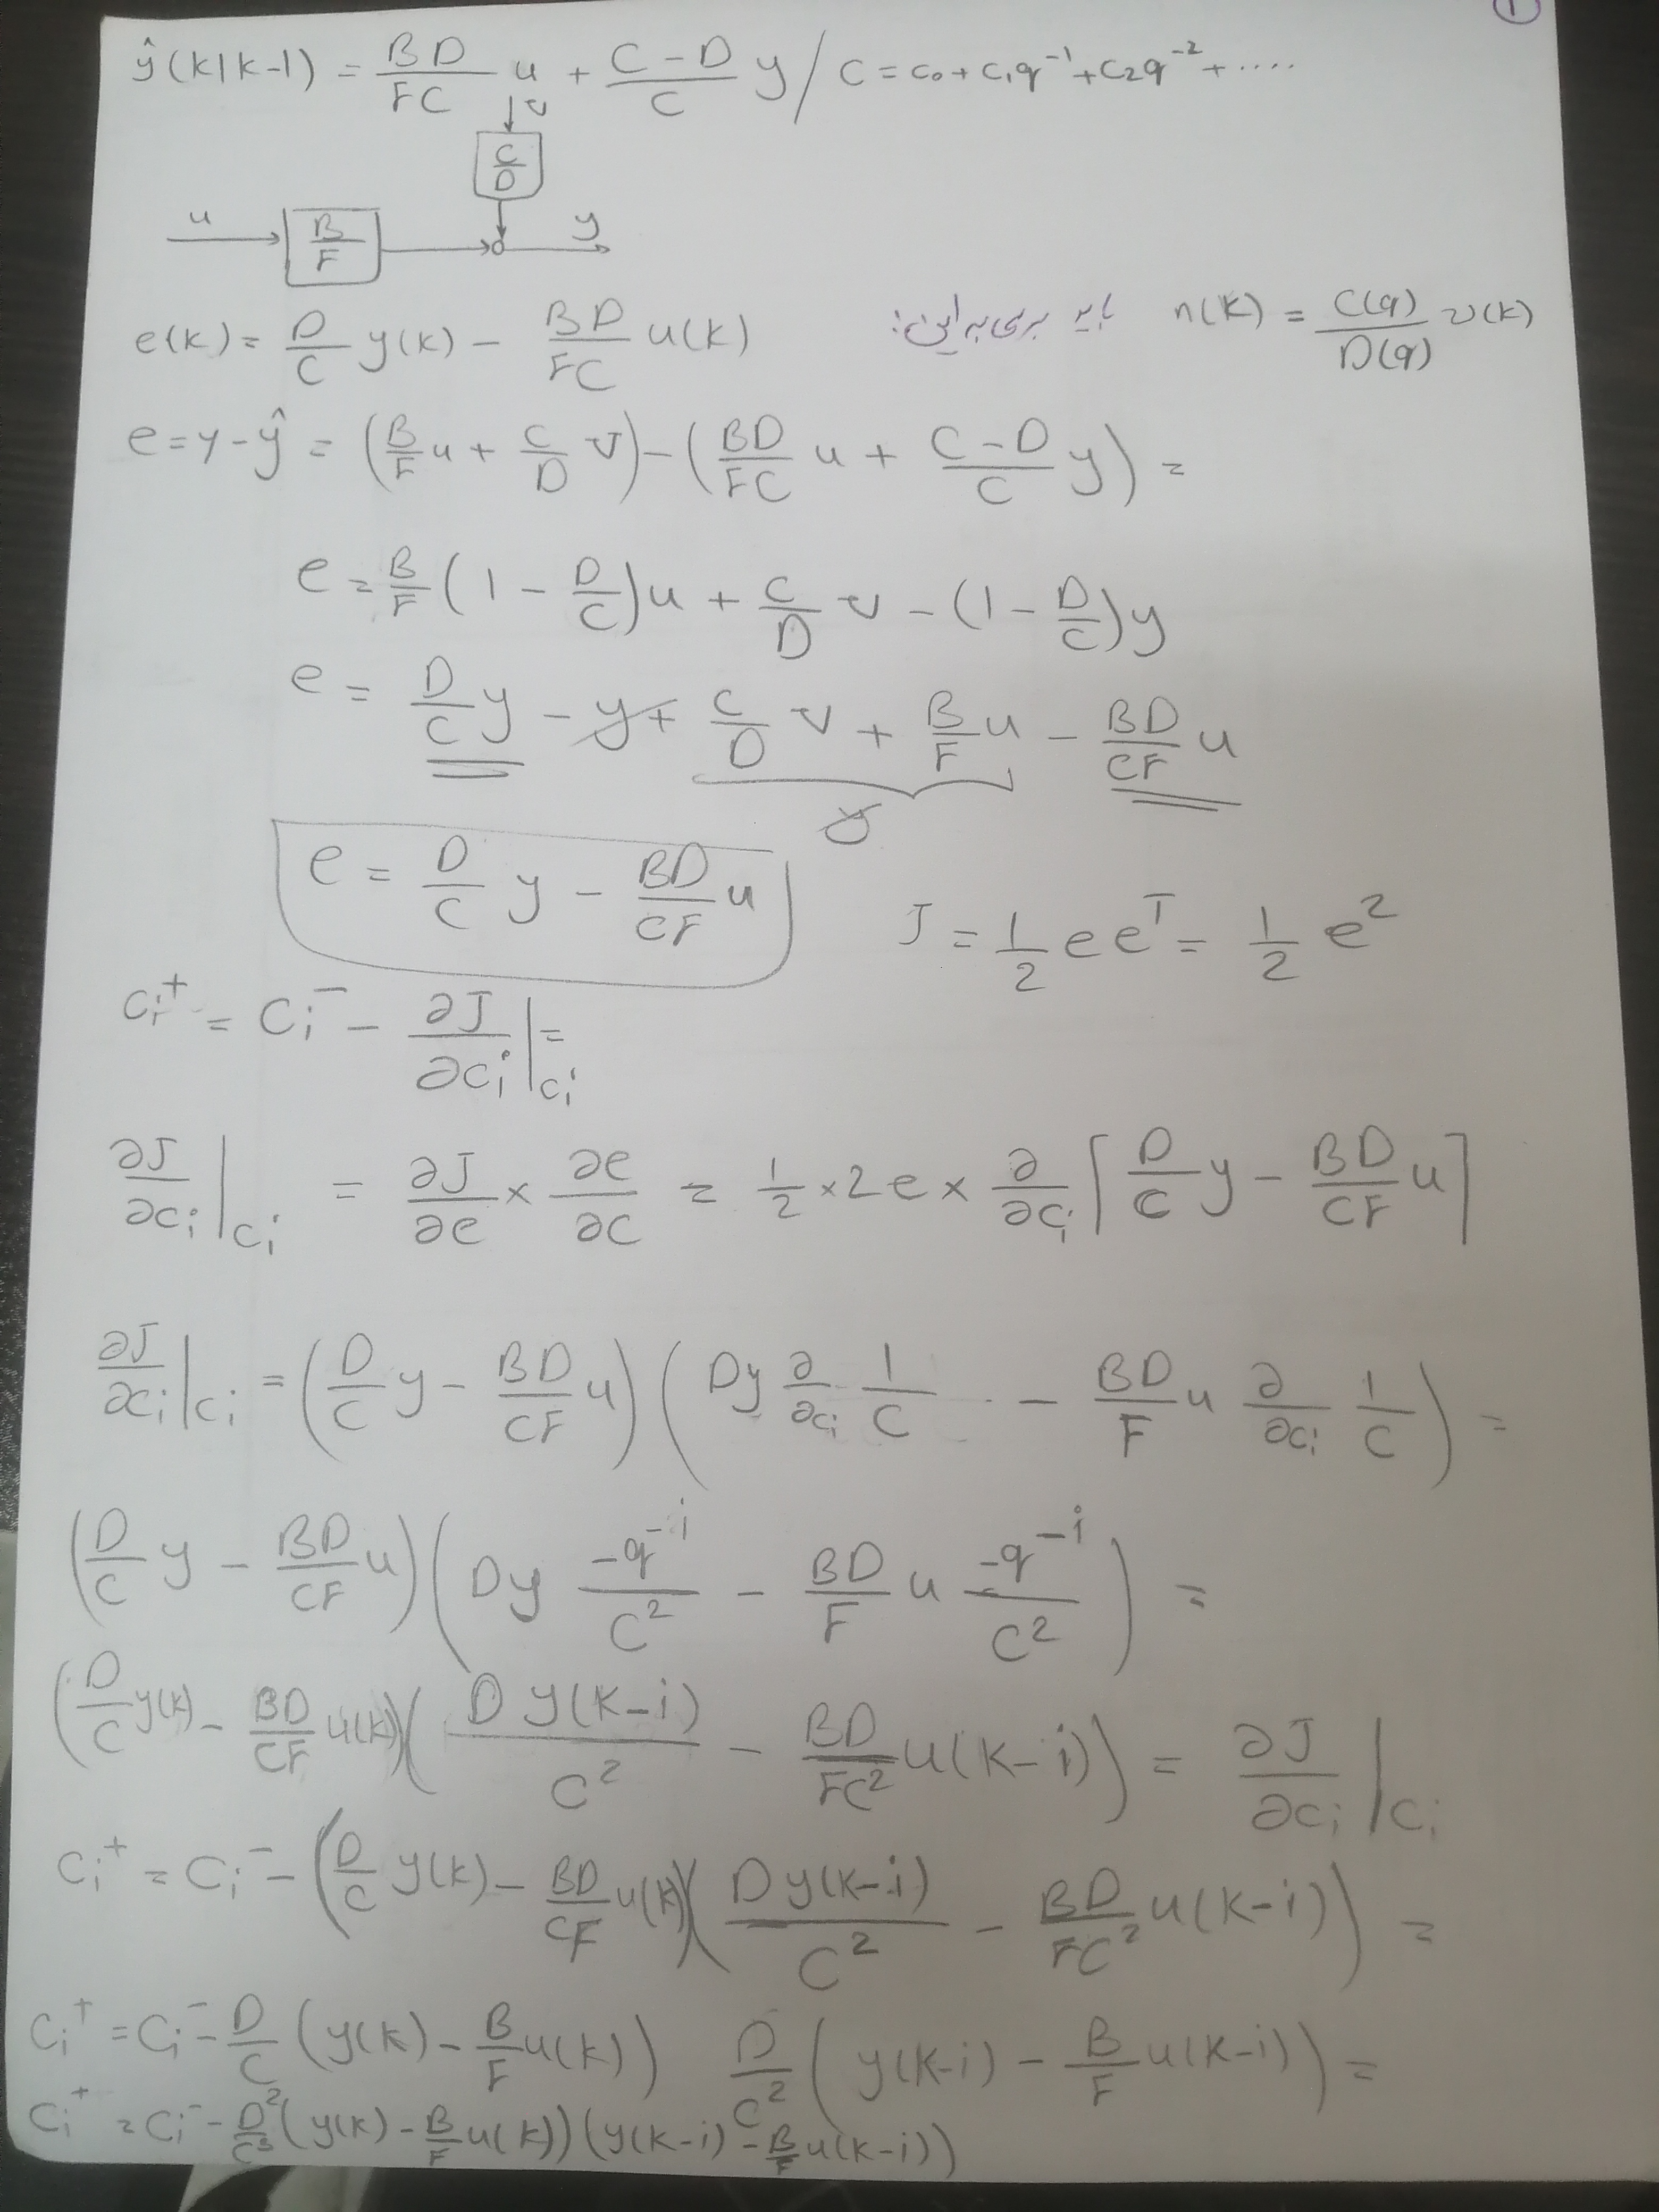 1
ŷ(k|k-1) = BD/FC u + C-D/C y / C = c₀ + c₁q⁻¹ + c₂q⁻² + ....
↓ v
C/D
u → B/F → y
e(k) = D/C y(k) - BD/FC u(k) باید برسی به این: n(k) = C(q)/D(q) v(k)
e = y - ŷ = (B/F u + C/D v) - (BD/FC u + C-D/C y) =
e = B/F (1 - D/C) u + C/D v - (1 - D/C) y
e = D/C y - y + C/D v + B/F u - BD/CF u
y
e = D/C y - BD/CF u J = 1/2 e eᵀ = 1/2 e²
cᵢ⁺ = cᵢ⁻ - ∂J/∂cᵢ |cᵢ =
∂J/∂cᵢ |cᵢ = ∂J/∂e × ∂e/∂c = 1/2 × 2e × ∂/∂cᵢ [D/C y - BD/CF u]
∂J/∂cᵢ |cᵢ = (D/C y - BD/CF u) (Dy ∂/∂cᵢ 1/C - BD/F u ∂/∂cᵢ 1/C) =
(D/C y - BD/CF u) (Dy -q⁻ⁱ/C² - BD/F u -q⁻ⁱ/C²) =
(D/C y(k) - BD/CF u(k)) (D y(k-i)/C² - BD/FC² u(k-i)) = ∂J/∂cᵢ |cᵢ
cᵢ⁺ = cᵢ⁻ - (D/C y(k) - BD/CF u(k)) (D y(k-i)/C² - BD/FC² u(k-i)) =
cᵢ⁺ = cᵢ⁻ - D/C (y(k) - B/F u(k)) D/C² (y(k-i) - B/F u(k-i)) =
cᵢ⁺ = cᵢ⁻ - D²/C³ (y(k) - B/F u(k)) (y(k-i) - B/F u(k-i))